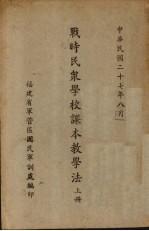 中華民國二十七年八月
戰時民眾學校課本教學法上冊
福建省軍管區國民軍訓處編印